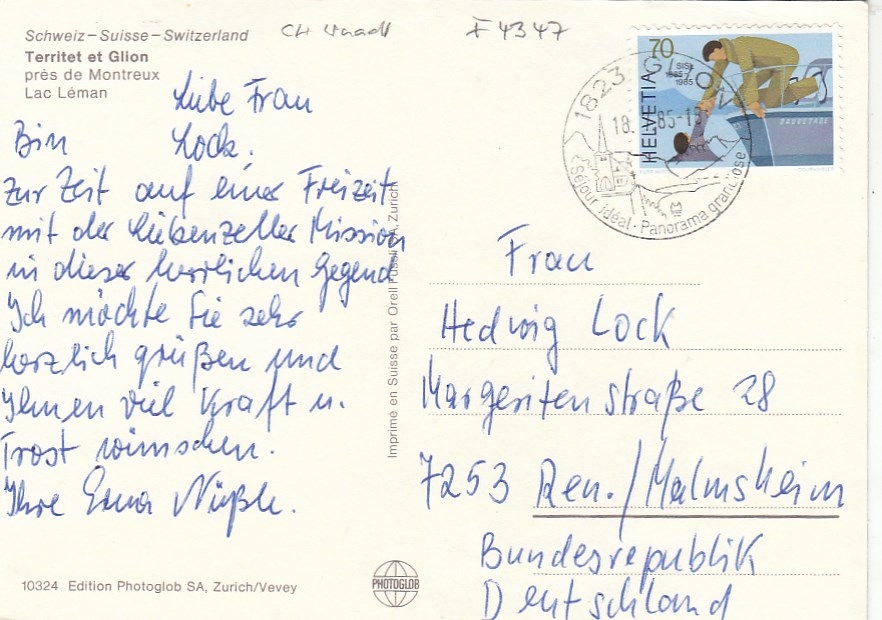 Schweiz – Suisse – Switzerland
Territet et Glion
près de Montreux
Lac Léman
CH Waadt
F4347
70
HELVETIA
SISL
1885
1985
1823 GLION
18. 85-1
Séjour idéal · Panorama grandiose
Liebe Frau
Lock.
Bin
zur Zeit auf einer Freizeit
mit der Liebenzeller Mission
in dieser herrlichen Gegend
Ich möchte Sie sehr
herzlich grüßen und
Ihnen viel Kraft u.
Trost wünschen.
Ihre Erna Nüßle.
Imprimé en Suisse par Orell Füssli SA, Zurich
Frau
Hedwig Lock
Margeritenstraße 28
7253 Ren./Malmsheim
Bundesrepublik
Deutschland
10324 Edition Photoglob SA, Zurich/Vevey
PHOTOGLOB